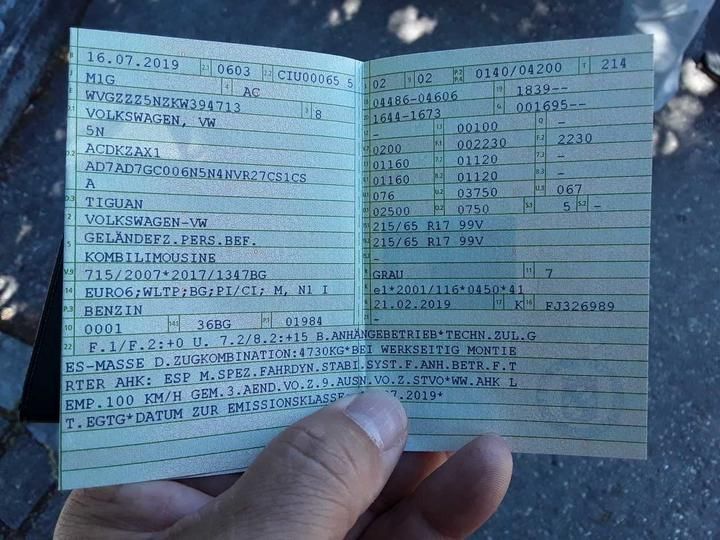 16.07.2019 2.1 0603 2.2 CIU00065 5
M1G 4 AC
WVGZZZ5NZKW394713 3 8
VOLKSWAGEN, VW
5N
ACDKZAX1
AD7AD7GC006N5N4NVR27CS1CS
A
TIGUAN
VOLKSWAGEN-VW
GELÄNDEFZ.PERS.BEF.
KOMBILIMOUSINE
V.9 715/2007*2017/1347BG
14 EURO6;WLTP;BG;PI/CI; M, N1 I
P.3 BENZIN
10 0001 14.1 36BG P.1 01984
02 9 02 P.2 P.4 0140/04200 T 214
04486-04606 19 1839--
1644-1673 G 001695--
- 13 00100 Q -
0200 F.1 002230 F.2 2230
01160 7.1 01120 7.3 -
01160 8.1 01120 8.3 -
076 U.2 03750 U.3 067
02500 O.2 0750 S.1 5 S.2 -
215/65 R17 99V
215/65 R17 99V
-
GRAU 11 7
e1*2001/116*0450*41
21.02.2019 17 K 16 FJ326989
-
22 F.1/F.2:+0 U. 7.2/8.2:+15 B.ANHÄNGEBETRIEB*TECHN.ZUL.G
ES-MASSE D.ZUGKOMBINATION:4730KG*BEI WERKSEITIG MONTIE
RTER AHK: ESP M.SPEZ.FAHRDYN.STABI.SYST.F.ANH.BETR.F.T
EMP.100 KM/H GEM.3.AEND.VO.Z.9.AUSN.VO.Z.STVO*WW.AHK L
T.EGTG*DATUM ZUR EMISSIONSKLASSE .07.2019*